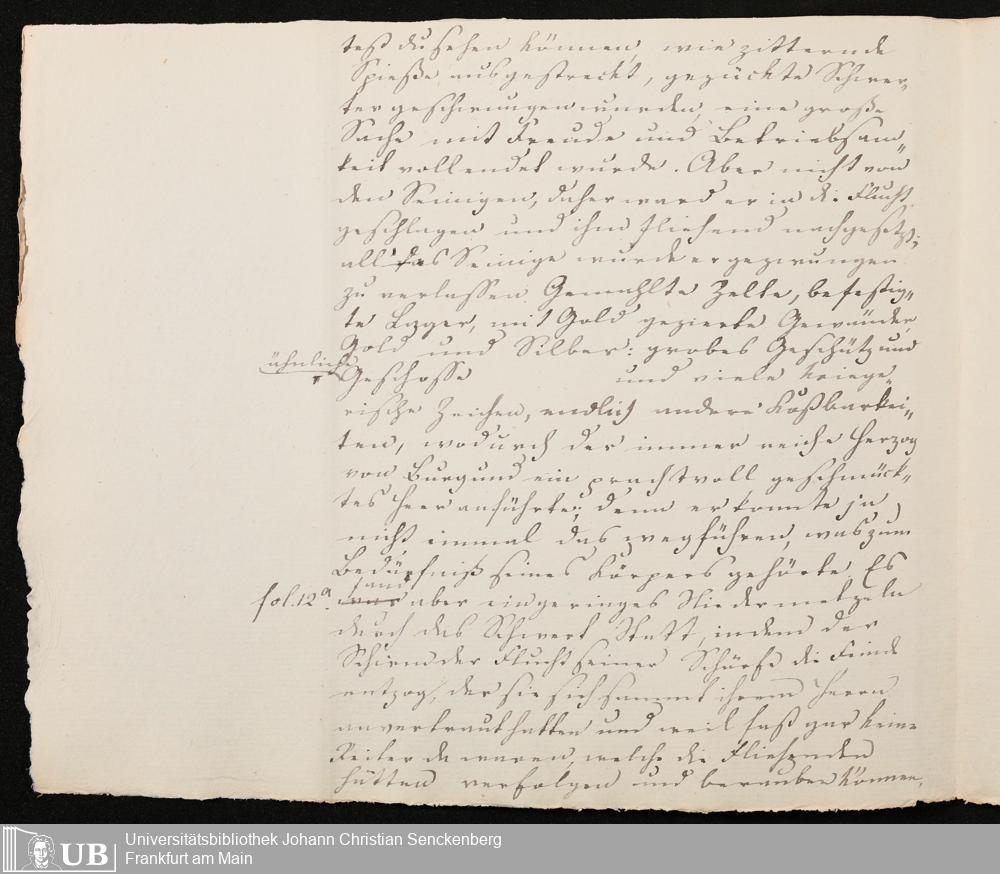 test du sehen können, wie zitternde
Spieße ausgestreckt, gezückte Schwer„
ter geschwungen wurden, eine große
Sache mit Freude und Betriebsam„
keit vollendet wurde. Aber nicht von
den Seinigen, daher ward er in die Flucht
geschlagen und ihm fliehend nachgesetzt;
all das Seinige wurde er gezwungen
zu verlassen Gemahlte Zelte, befestig„
te Lager, mit Gold gezierte Gewänder
Gold und Silber: grobes Geschütz und
ähnliche
Geschosse und viele kriege„
rische Zeichen, endlich andere Kostbarkei„
ten, wodurch der immer reiche Herzog
von Burgund ein prachtvoll geschmück„
tes Heer anführte; denn er konnte ja
nicht einmal das wegführen, was zum
Bedürfniß seines Körpers gehörte Es
fol. 12ª. fand aber ein geringes Niedermetzeln
durch das Schwert Statt, indem der
Schirm der Flucht seiner Schärfe die Feinde
entzog, der sie sich sammt ihrem Herrn
anvertraut hatten und weil fast gar keine
Reiter da waren, welche die Fliehenden
hätten verfolgen und berauben können.
UB
Universitätsbibliothek Johann Christian Senckenberg
Frankfurt am Main